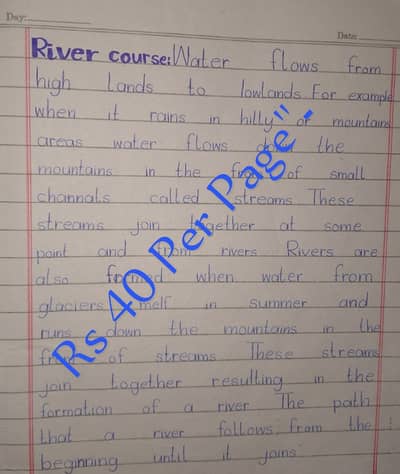 Day:
Date:
River course: Water flows from
high lands to lowlands. For example
when it rains in hilly or mountains
areas water flows down the
mountains in the from of small
channals called streams These
streams join together at some
point and from rivers Rivers are
also formed when water from
glaciers melf in summer and
runs down the mountains in the
from of streams These streams
join together resulting in the
formation of a river The path
that a river follows from the
beginning until it joins
Rs 40 Per Page".